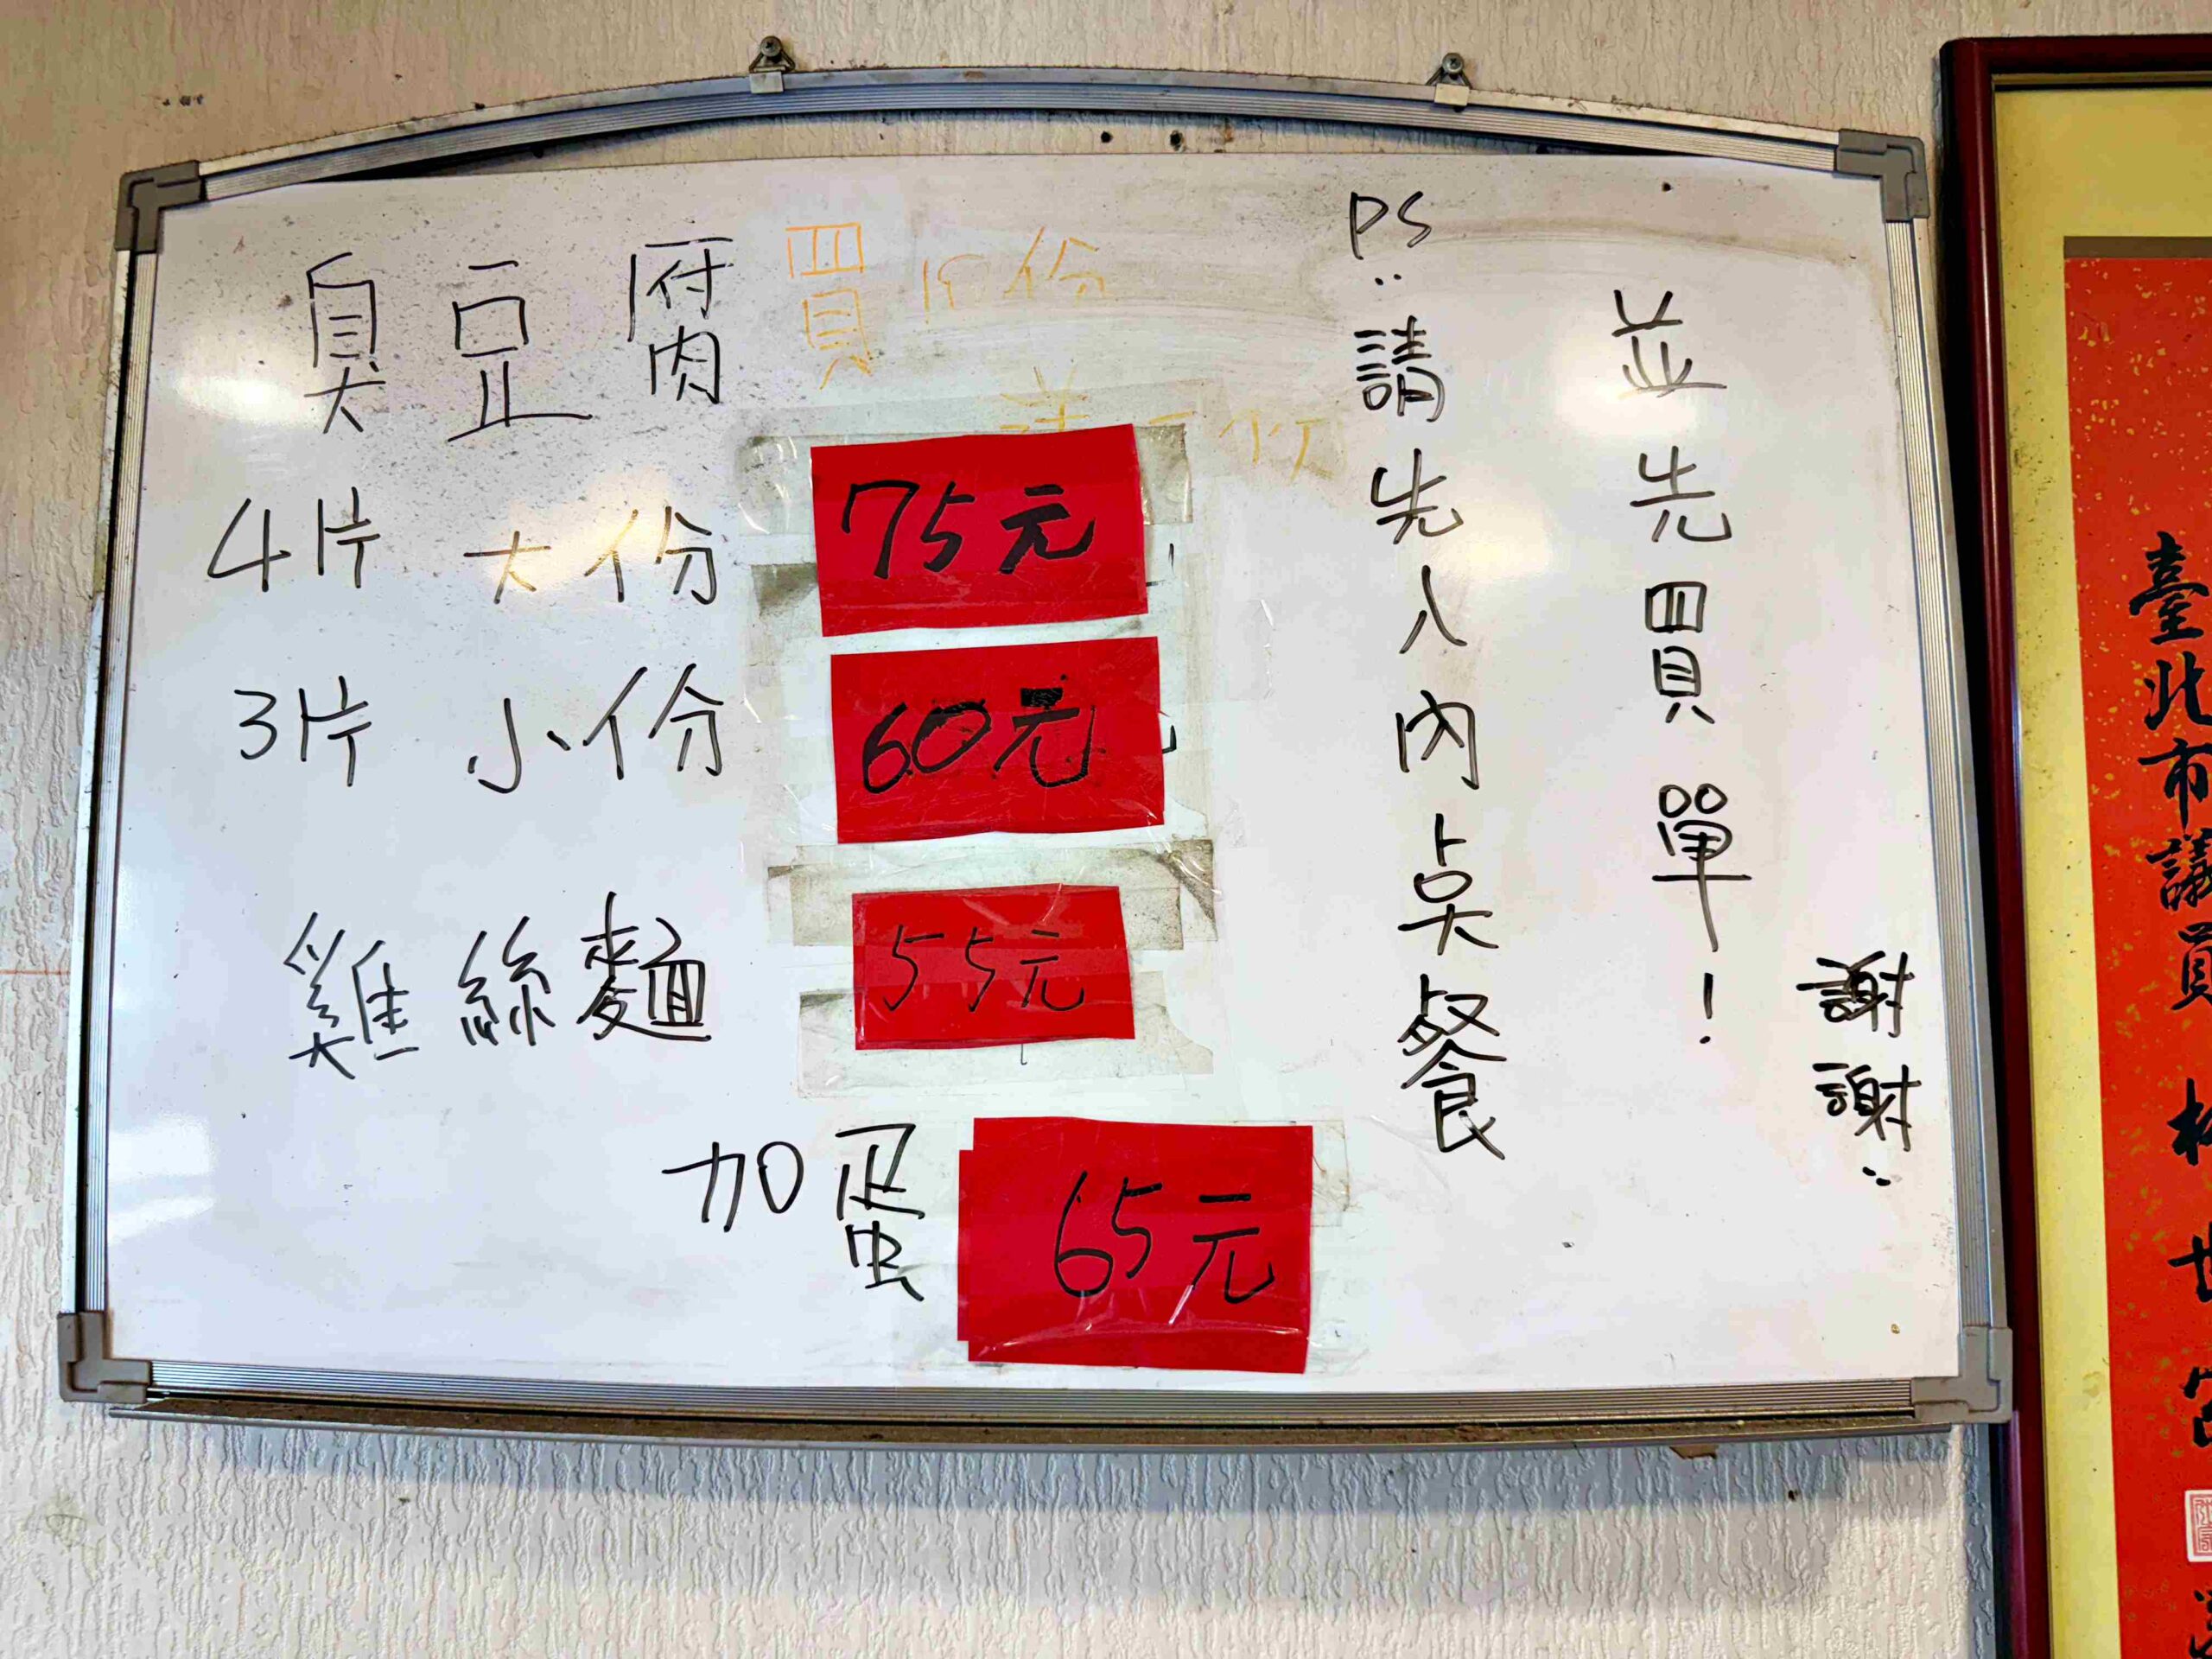 臭豆腐
買10份
送一份
4片 大份 75元
3片 小份 60元
雞絲麵 55元
加蛋 65元
PS:請先入內点餐
並先買單!
謝謝:
臺北市議員